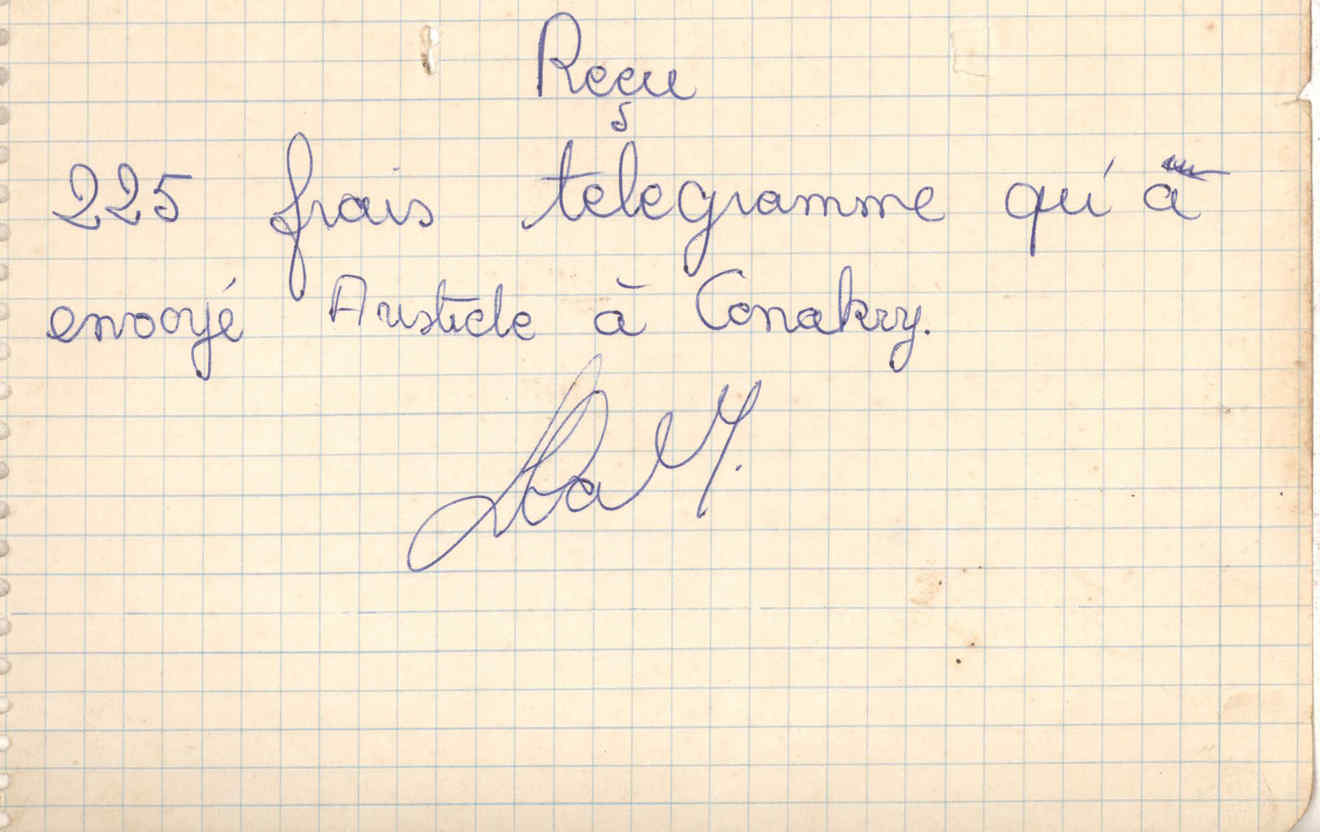 Reçu
225 frais telegramme qu'a
envoyé Aristide à Conakry.